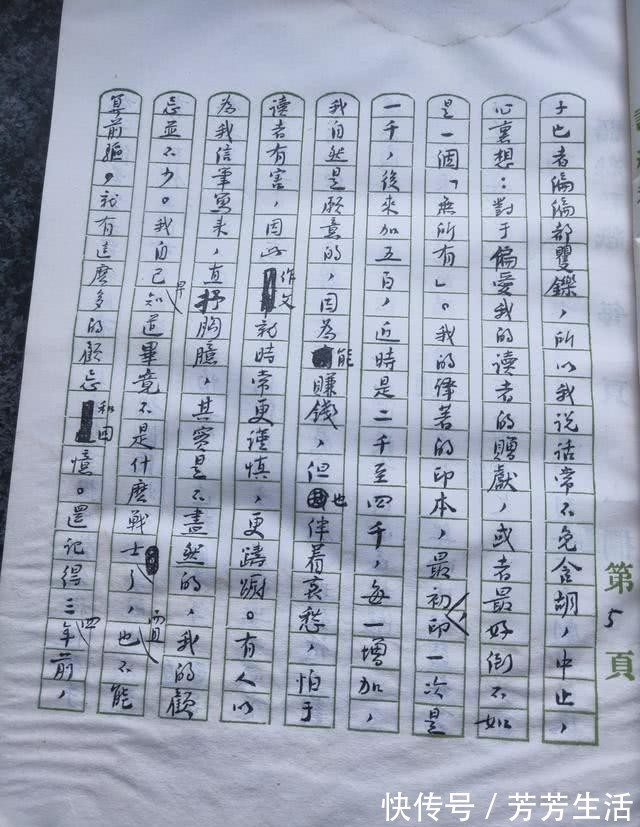 于巴者偏偏都矍鑠，所以我说话常不免含胡，中止，
心裏想：對于偏愛我的读者的贈獻，或者最好倒不如
是一個「無所有」。我的译著的印本，最初，印一次是
一千，後來加五百，近時是二千至四千，每一增加，
我自然是願意的，因為能賺錢，但也伴着哀愁，怕于
读者有害，因此作文就時常更谨慎，更踌躇。有人以
為我信筆寫来，直抒胸臆，其實是不盡然的，我的顧
忌並不少。我自己早知道畢竟不是什麼戰士了，而且也不能
算前驅，就有這麼多的顧忌和回憶。還记得三四年前，
第5頁
快传号／芳芳生活